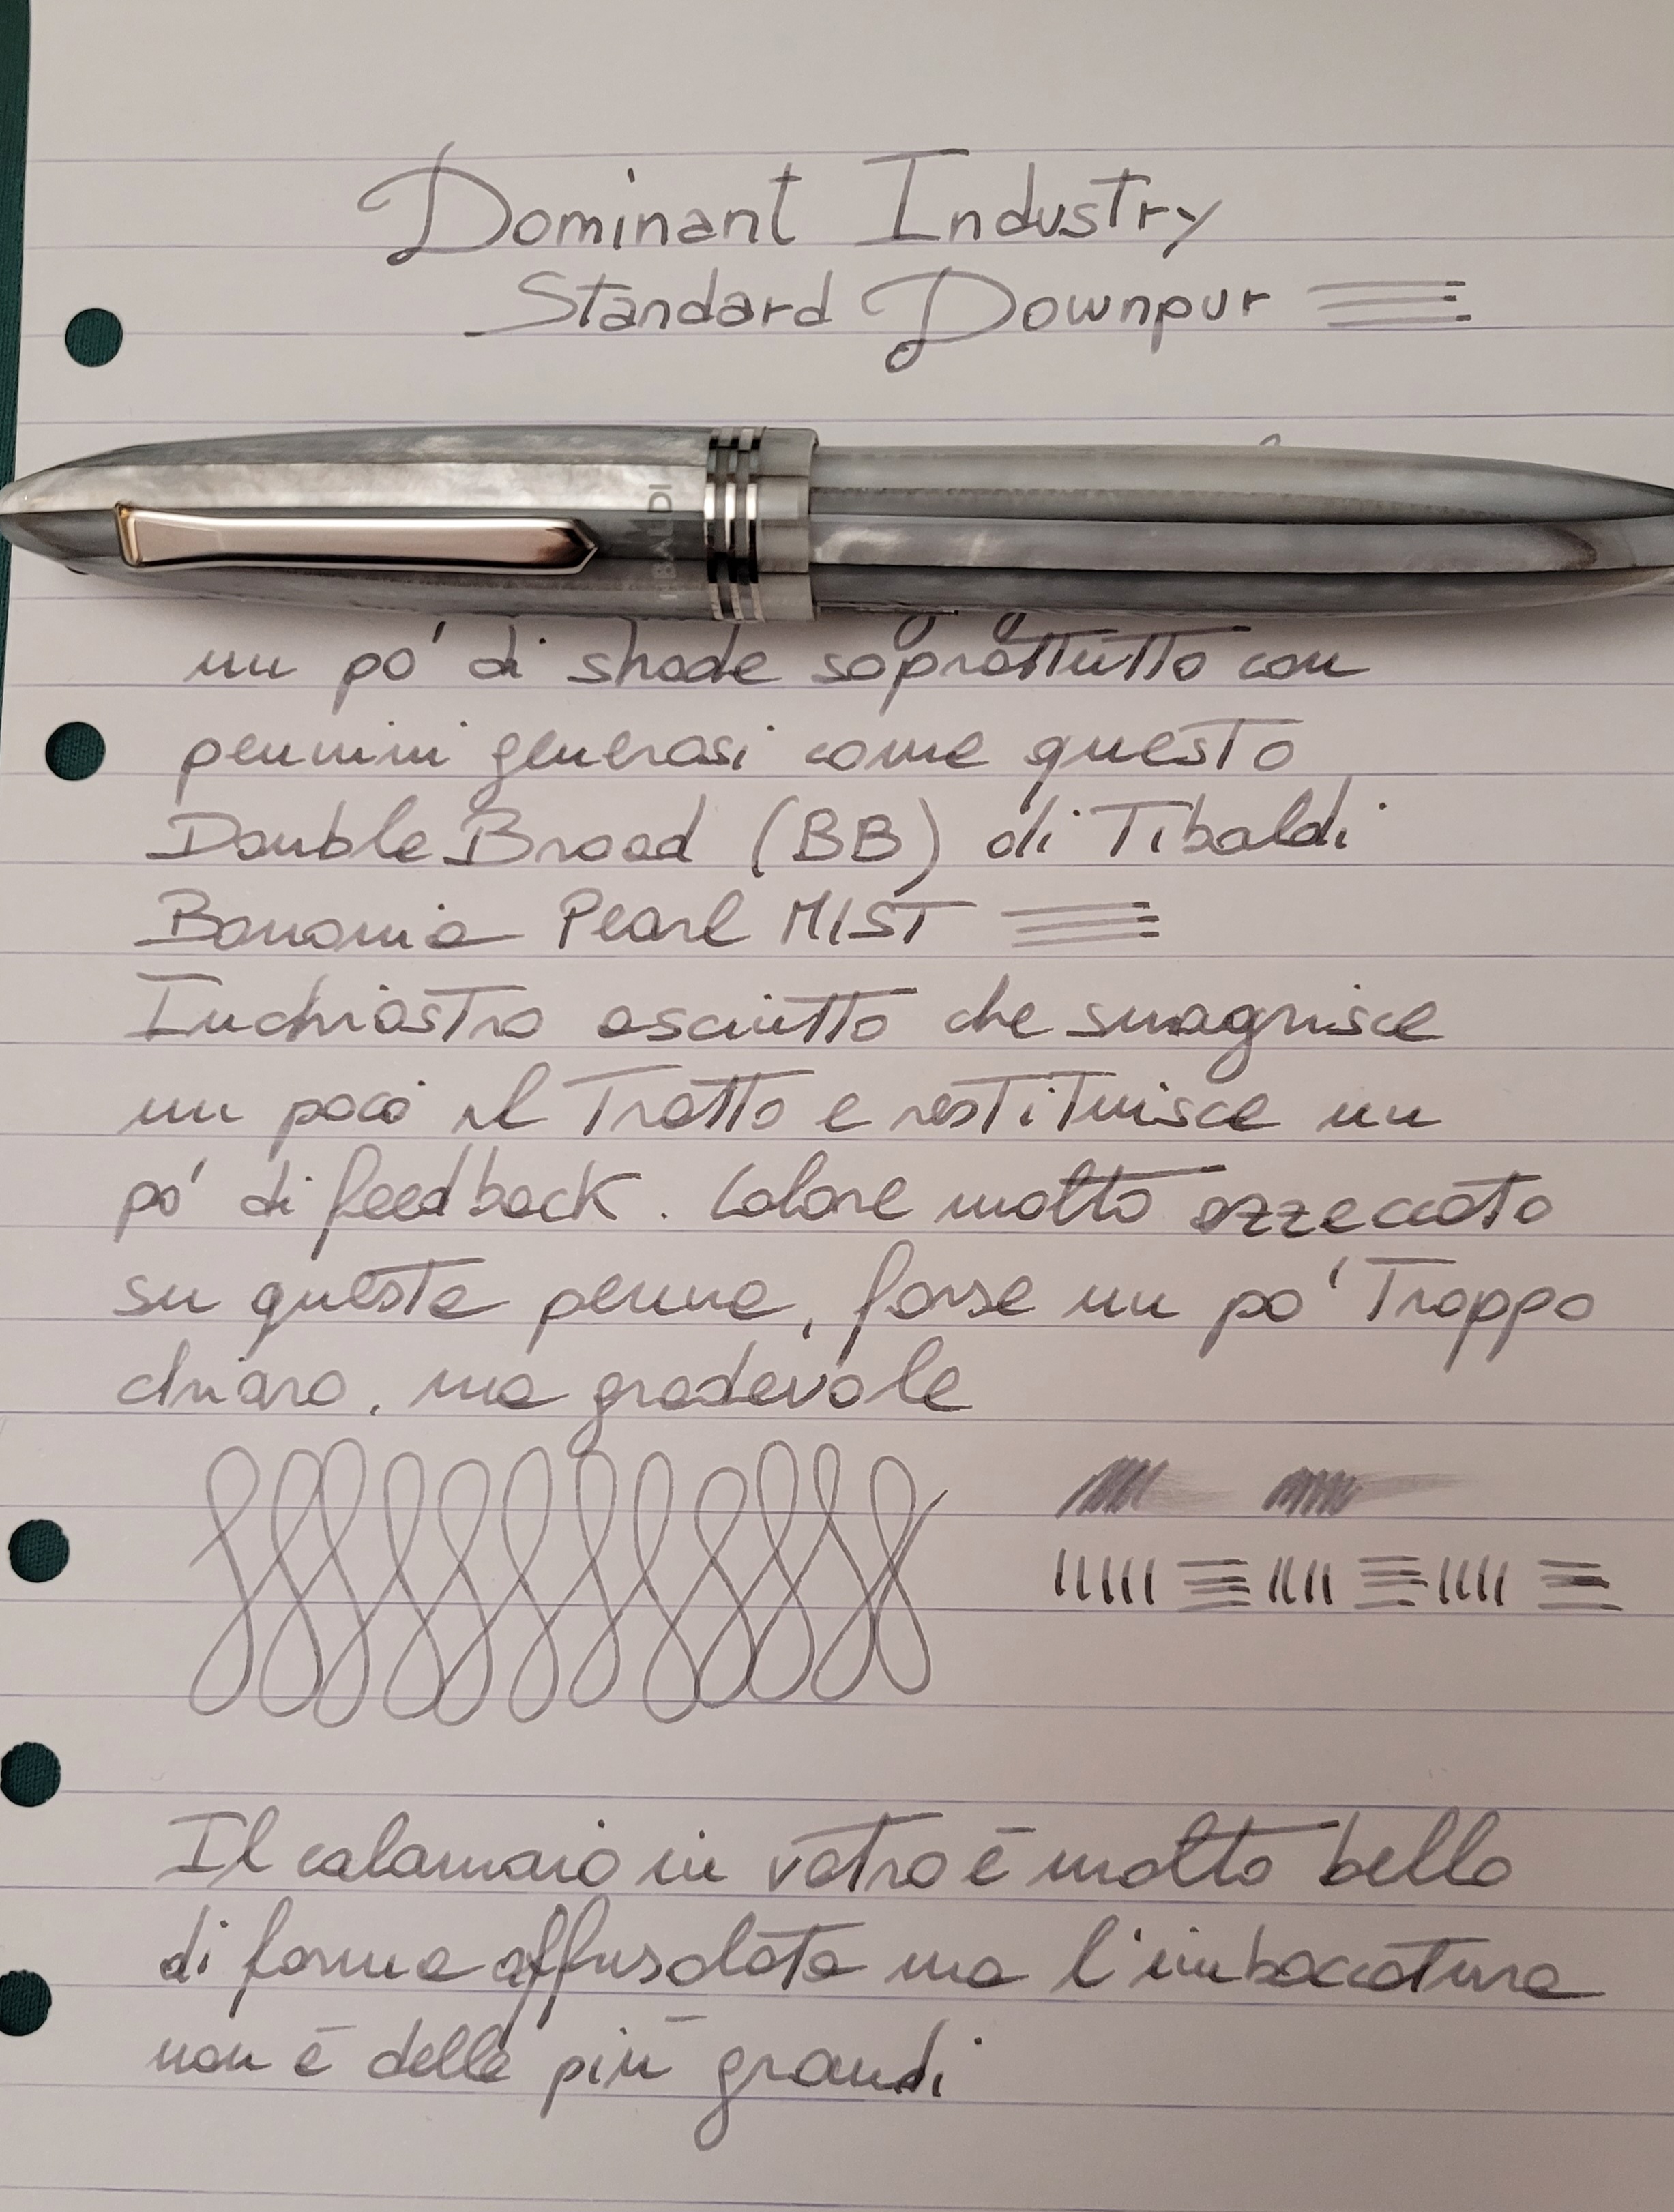 Dominant Industry
Standard Downpur
TIBALDI
un po' di shade soprattutto con
pennini generosi come questo
Double Broad (BB) di Tibaldi
Bononia Pearl MIST
Inchiostro asciutto che smagrisce
un poco il Tratto e restituisce un
po' di feedback. Colore molto azzeccato
su questa penna, forse un po' Troppo
chiaro, ma gradevole
Il calamaio in vetro è molto bello
di forma affusolata ma l'imboccatura
non è delle più grandi